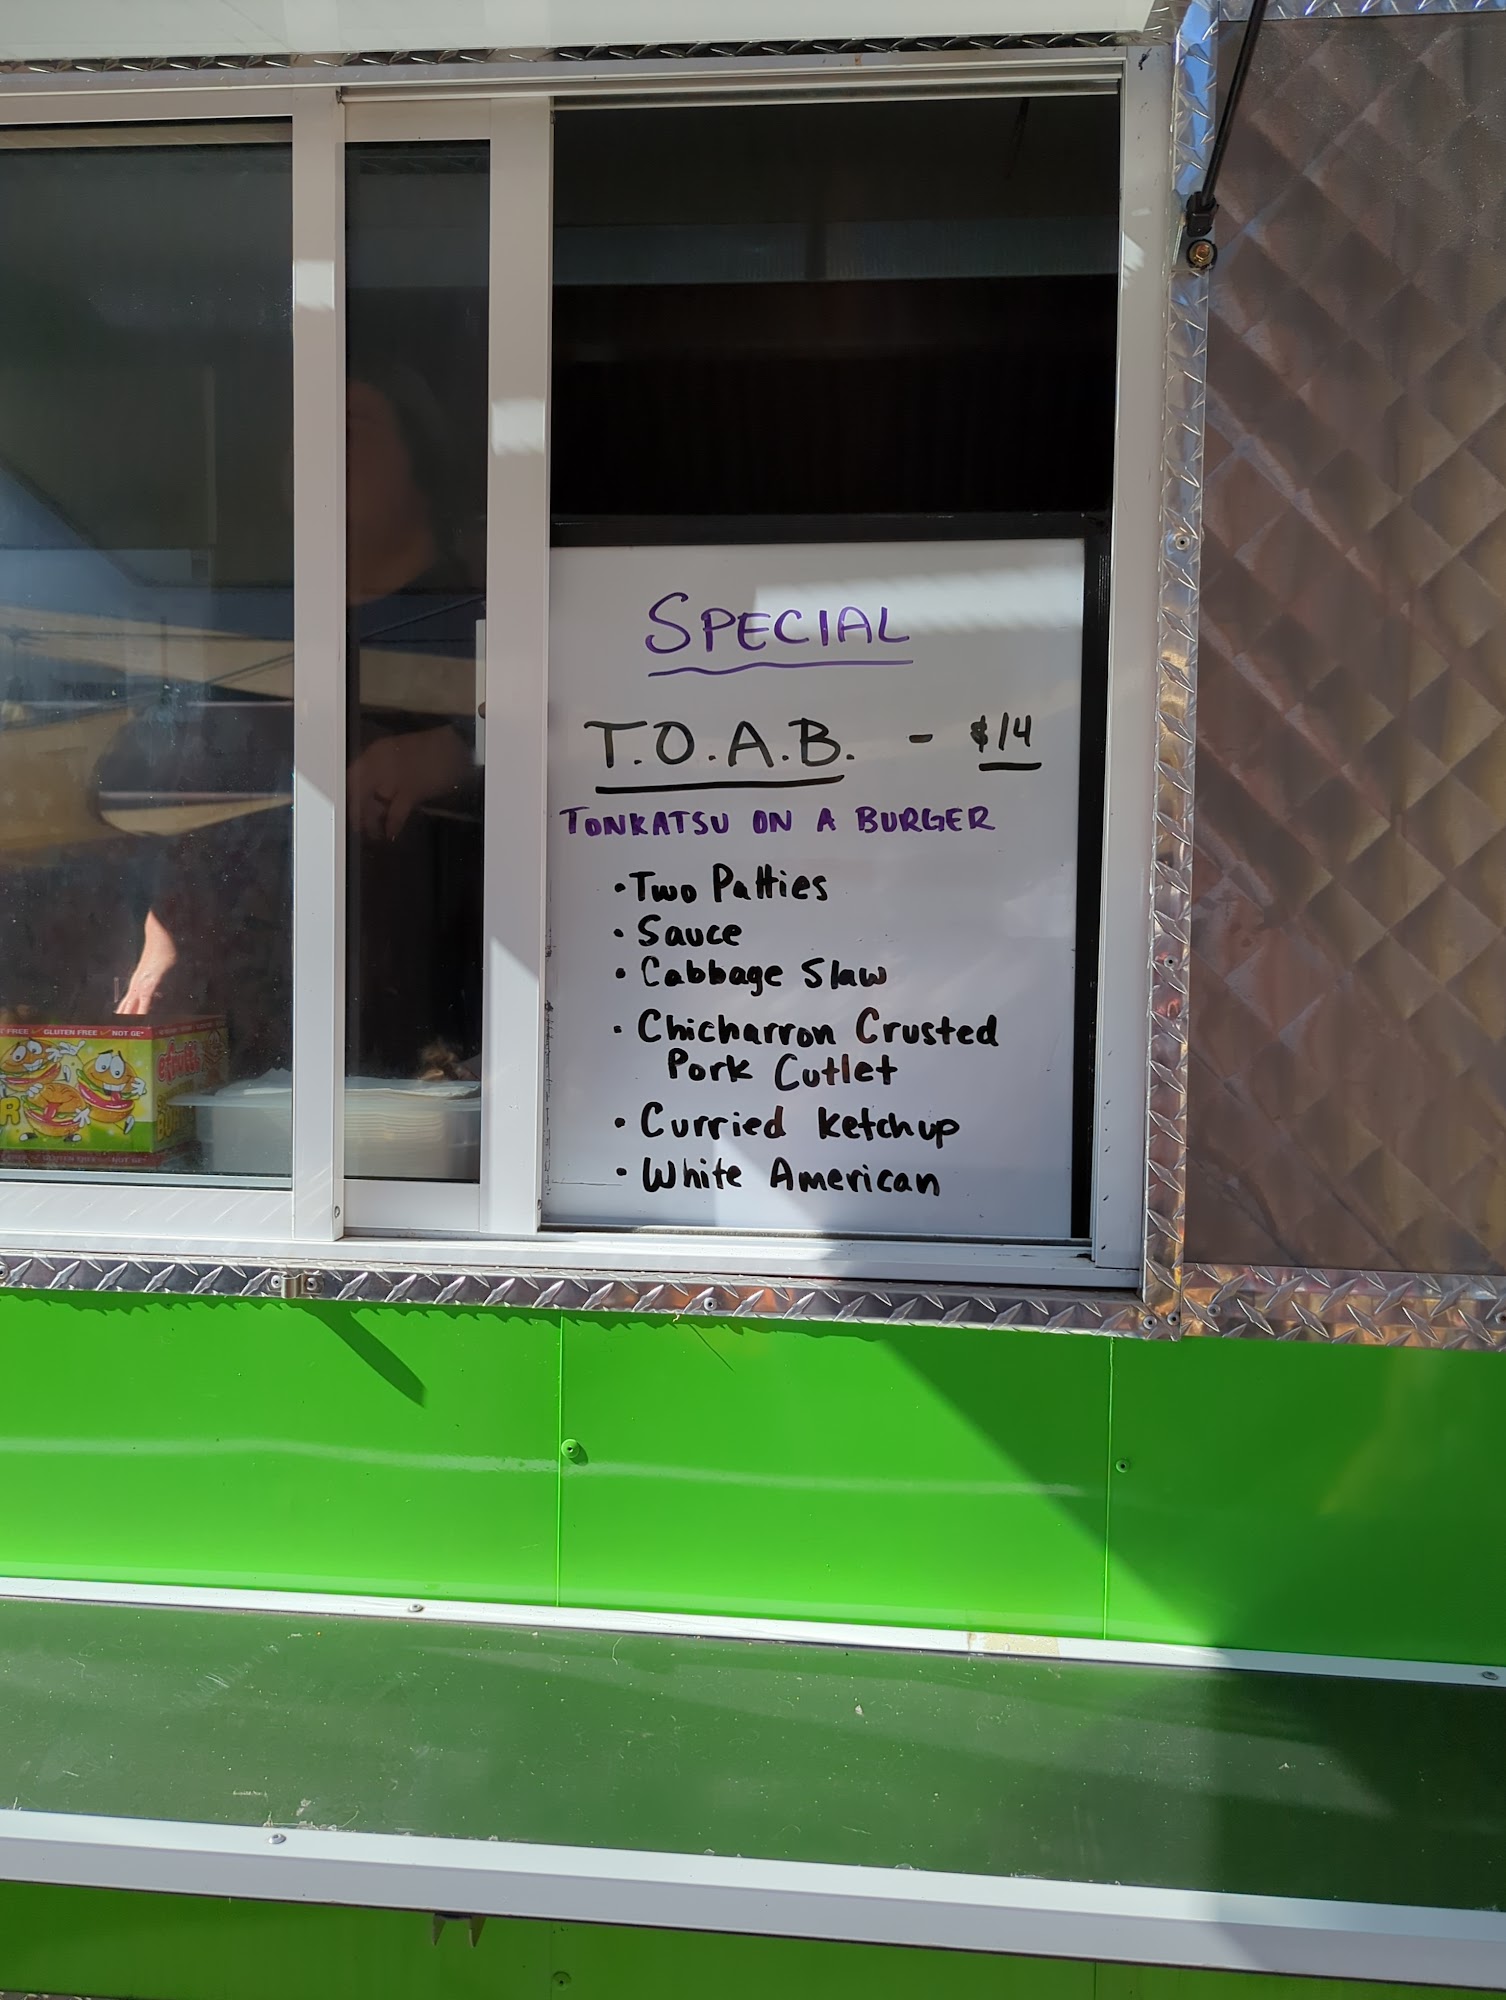 SPECIAL
T.O.A.B. - $14
TONKATSU ON A BURGER
• Two Patties
• Sauce
• Cabbage Slaw
• Chicharron Crusted
Pork Cutlet
• Curried Ketchup
• White American
FREE ✓ GLUTEN FREE ✓ NOT GE*
efrutti